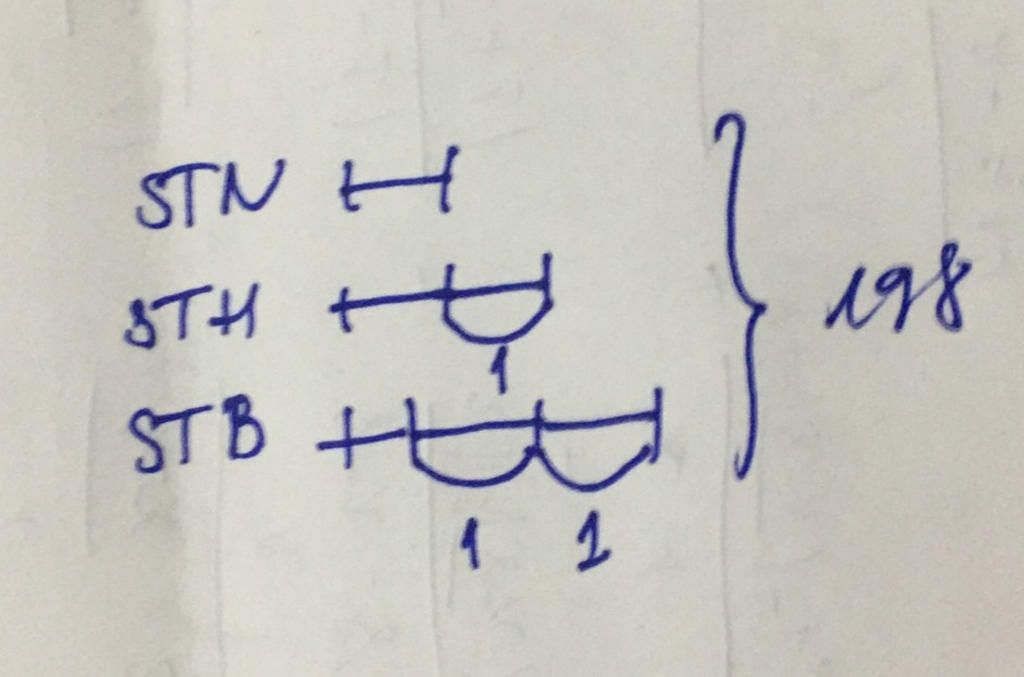 STN
STH
1
198
STB
1 1